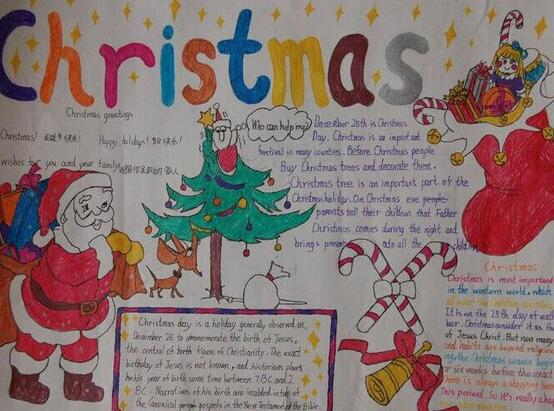 Christmas
Christmas greetings
Christmas! 圣诞节快乐! Happy holidays! 节日快乐!
wishes for you and your family
Who can help me?
December 25th is Christmas
Day. Christmas is an important
festival in many countries. Before Christmas people
Buy Christmas trees and decorate them.
Christmas tree is an important part of the
Christmas holiday. On Christmas eve people
parents tell their children that Father
Christmas comes during the night and
brings presents to all the children
Christmas
Christmas is most important
in the western world, which
It is on the 25th day of
ber. Christmas consider it as
of Jesus Christ. But now many
and habits are beyond religion
ing the Christmas season
or six weeks before the exact
there is always a shopping
This period. So it's really
Christmas day is a holiday generally observed on
December 25 to commemorate the birth of Jesus,
the central of birth figure of Christianity. The exact
birthday of Jesus is not known, and historians place
his year of birth some time between 7BC and 2
BC. Narratives of his birth are included in two of
the Canonical gospels in the New Testament of the Bible